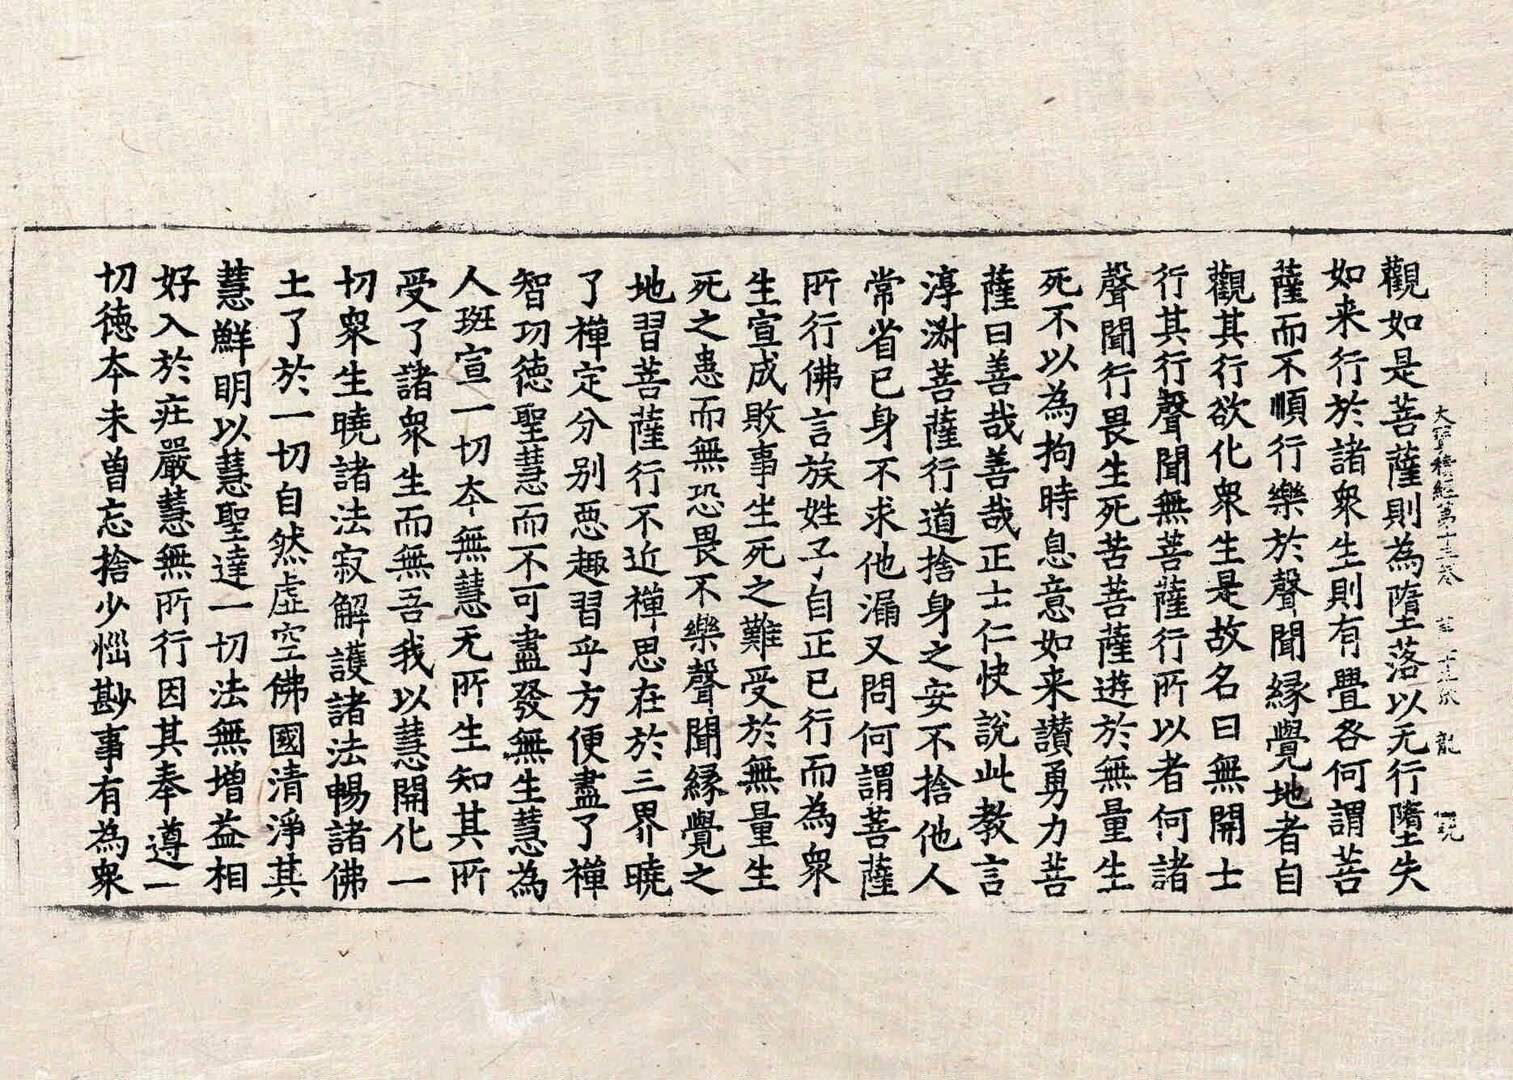 大寶積經第十三卷 龍
觀如是菩薩則為墮落以无行墮失
如来行於諸衆生則有畳各何謂菩
薩而不順行樂於聲聞縁覺地者自
觀其行欲化衆生是故名曰無開士
行其行聲聞無菩薩行所以者何諸
聲聞行畏生死苦菩薩遊於無量生
死不以為拘時息意如来讃勇力菩
薩曰善哉善哉正士仁快說此教言
淳淑菩薩行道捨身之安不捨他人
常省已身不求他漏又問何謂菩薩
所行佛言族姓子自正已行而為衆
生宣成敗事生死之難受於無量生
死之患而無恐畏不樂聲聞縁覺之
地習菩薩行不近禪思在於三界曉
了禪定分別惡趣習乎方便盡了禪
智功徳聖慧而不可盡發無生慧為
人班宣一切夲無慧无所生知其所
受了諸衆生而無吾我以慧開化一
切衆生曉諸法寂解護諸法暢諸佛
土了於一切自然虛空佛國清淨其
慧鮮明以慧聖達一切法無增益相
好入於疘嚴慧無所行因其奉遵一
切徳夲未曽忘捨少惱尠事有為衆